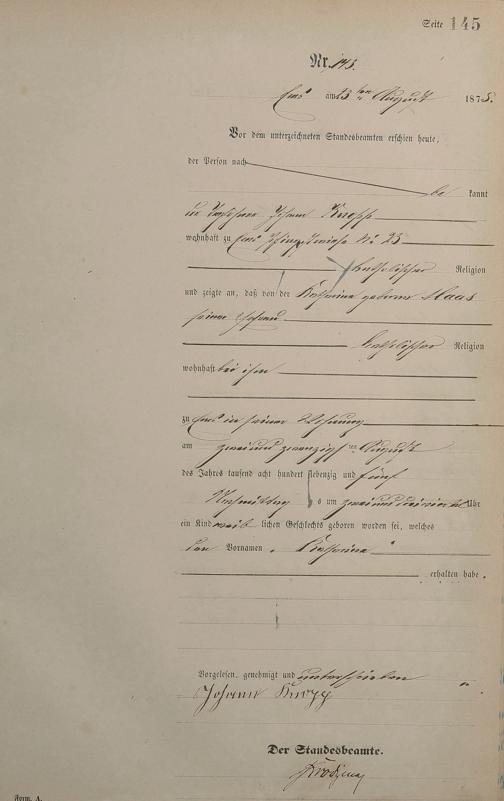 Seite 145
Nr. 145.
Ems am 23 ten August 1875.
Vor dem unterzeichneten Standesbeamten erschien heute,
der Person nach
be kannt
der Taglöhner Johann Knopp
wohnhaft zu Ems No 23
katholischer Religion
und zeigte an, daß von der Katharina geborene Maas
seiner Ehefrau
katholischer Religion
wohnhaft bei ihm
zu Ems in seiner Wohnung
am zwei und zwanzigsten August
des Jahres tausend acht hundert siebenzig und fünf
Nachmittag s um zwei und drei viertel Uhr
ein Kind weib lichen Geschlechts geboren worden sei, welches
den Vornamen „Katharina“
erhalten habe.
Vorgelesen, genehmigt und unterschrieben
Johann Knopp
Der Standesbeamte.
Form. A.